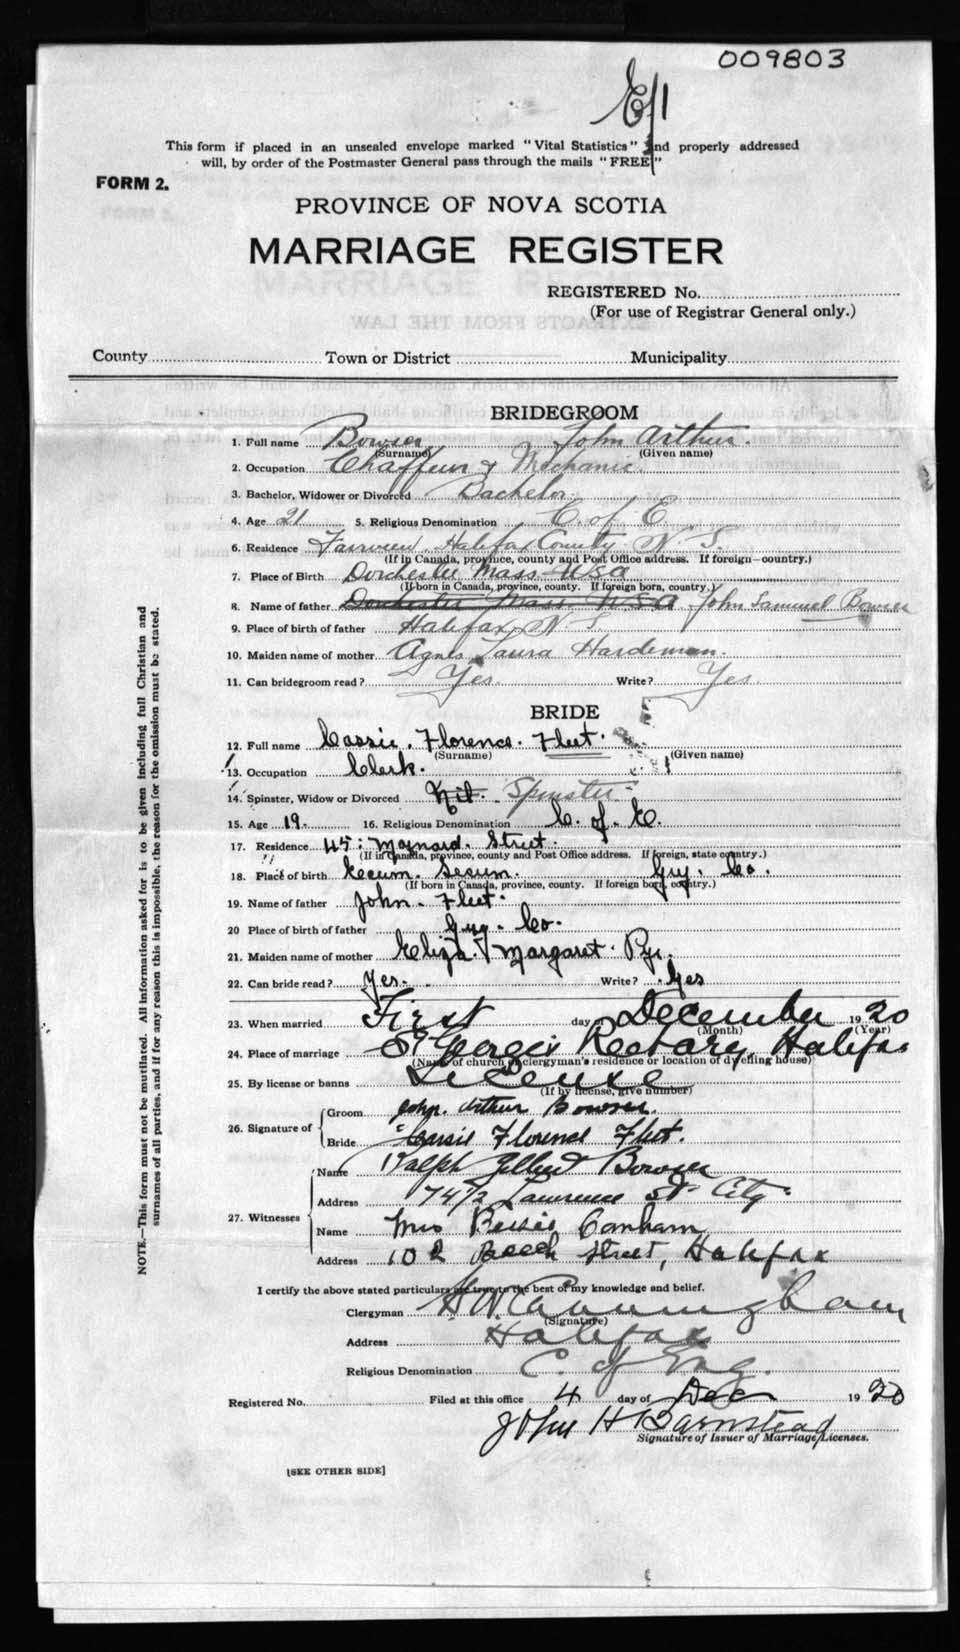 009803
E/1
This form if placed in an unsealed envelope marked "Vital Statistics" and properly addressed
will, by order of the Postmaster General pass through the mails "FREE"
FORM 2.
PROVINCE OF NOVA SCOTIA
MARRIAGE REGISTER
REGISTERED No.
(For use of Registrar General only.)
County Town or District Municipality
BRIDEGROOM
1. Full name Bowser John Arthur.
(Surname) (Given name)
2. Occupation Chaffeur & Mechanic.
3. Bachelor, Widower or Divorced Bachelor.
4. Age 21 5. Religious Denomination C. of E.
6. Residence Fairview Halifax County N. S.
(If in Canada, province, county and Post Office address. If foreign—country.)
7. Place of Birth Dorchester Mass. USA
(If born in Canada, province, county. If foreign born, country.)
8. Name of father Dorchester Mass. USA John Samuel Bowser
9. Place of birth of father Halifax, N S
10. Maiden name of mother Agnes Laura Hardeman.
11. Can bridegroom read? Yes. Write? Yes.
BRIDE
12. Full name Cassie. Florence. Fleet.
(Surname) (Given name)
13. Occupation Clerk.
14. Spinster, Widow or Divorced Nil. Spinster
15. Age 19. 16. Religious Denomination C. of E.
17. Residence 45: Maynard. Street.
(If in Canada, province, county and Post Office address. If foreign, state country.)
18. Place of birth Eecum. Secum. Guy. Co.
(If born in Canada, province, county. If foreign born, country.)
19. Name of father John. Fleet.
20 Place of birth of father Guy. Co.
21. Maiden name of mother Eliza. Margaret. Pye.
22. Can bride read? Yes. Write? Yes
23. When married First day of December 1920
(Month) (Year)
24. Place of marriage St George's Rectory, Halifax
(Name of church or clergyman's residence or location of dwelling house)
25. By license or banns License
(If by license, give number)
26. Signature of Groom John. Arthur Bowser.
Bride Cassie Florence Fleet.
27. Witnesses Name Ralph Bowser
Address 74½ Lawrence St City
Name Mrs Bessie Canham
Address 102 Beech Street, Halifax
I certify the above stated particulars are true to the best of my knowledge and belief.
Clergyman H W Cunningham
(Signature)
Address Halifax
Religious Denomination C. of Eng.
Registered No. Filed at this office 4 day of Dec 1920
John H Barnstead
Signature of Issuer of Marriage Licenses.
[SEE OTHER SIDE]
NOTE.—This form must not be mutilated. All information asked for is to be given including full Christian and
surnames of all parties, and if for any reason this is impossible, the reason for the omission must be stated.